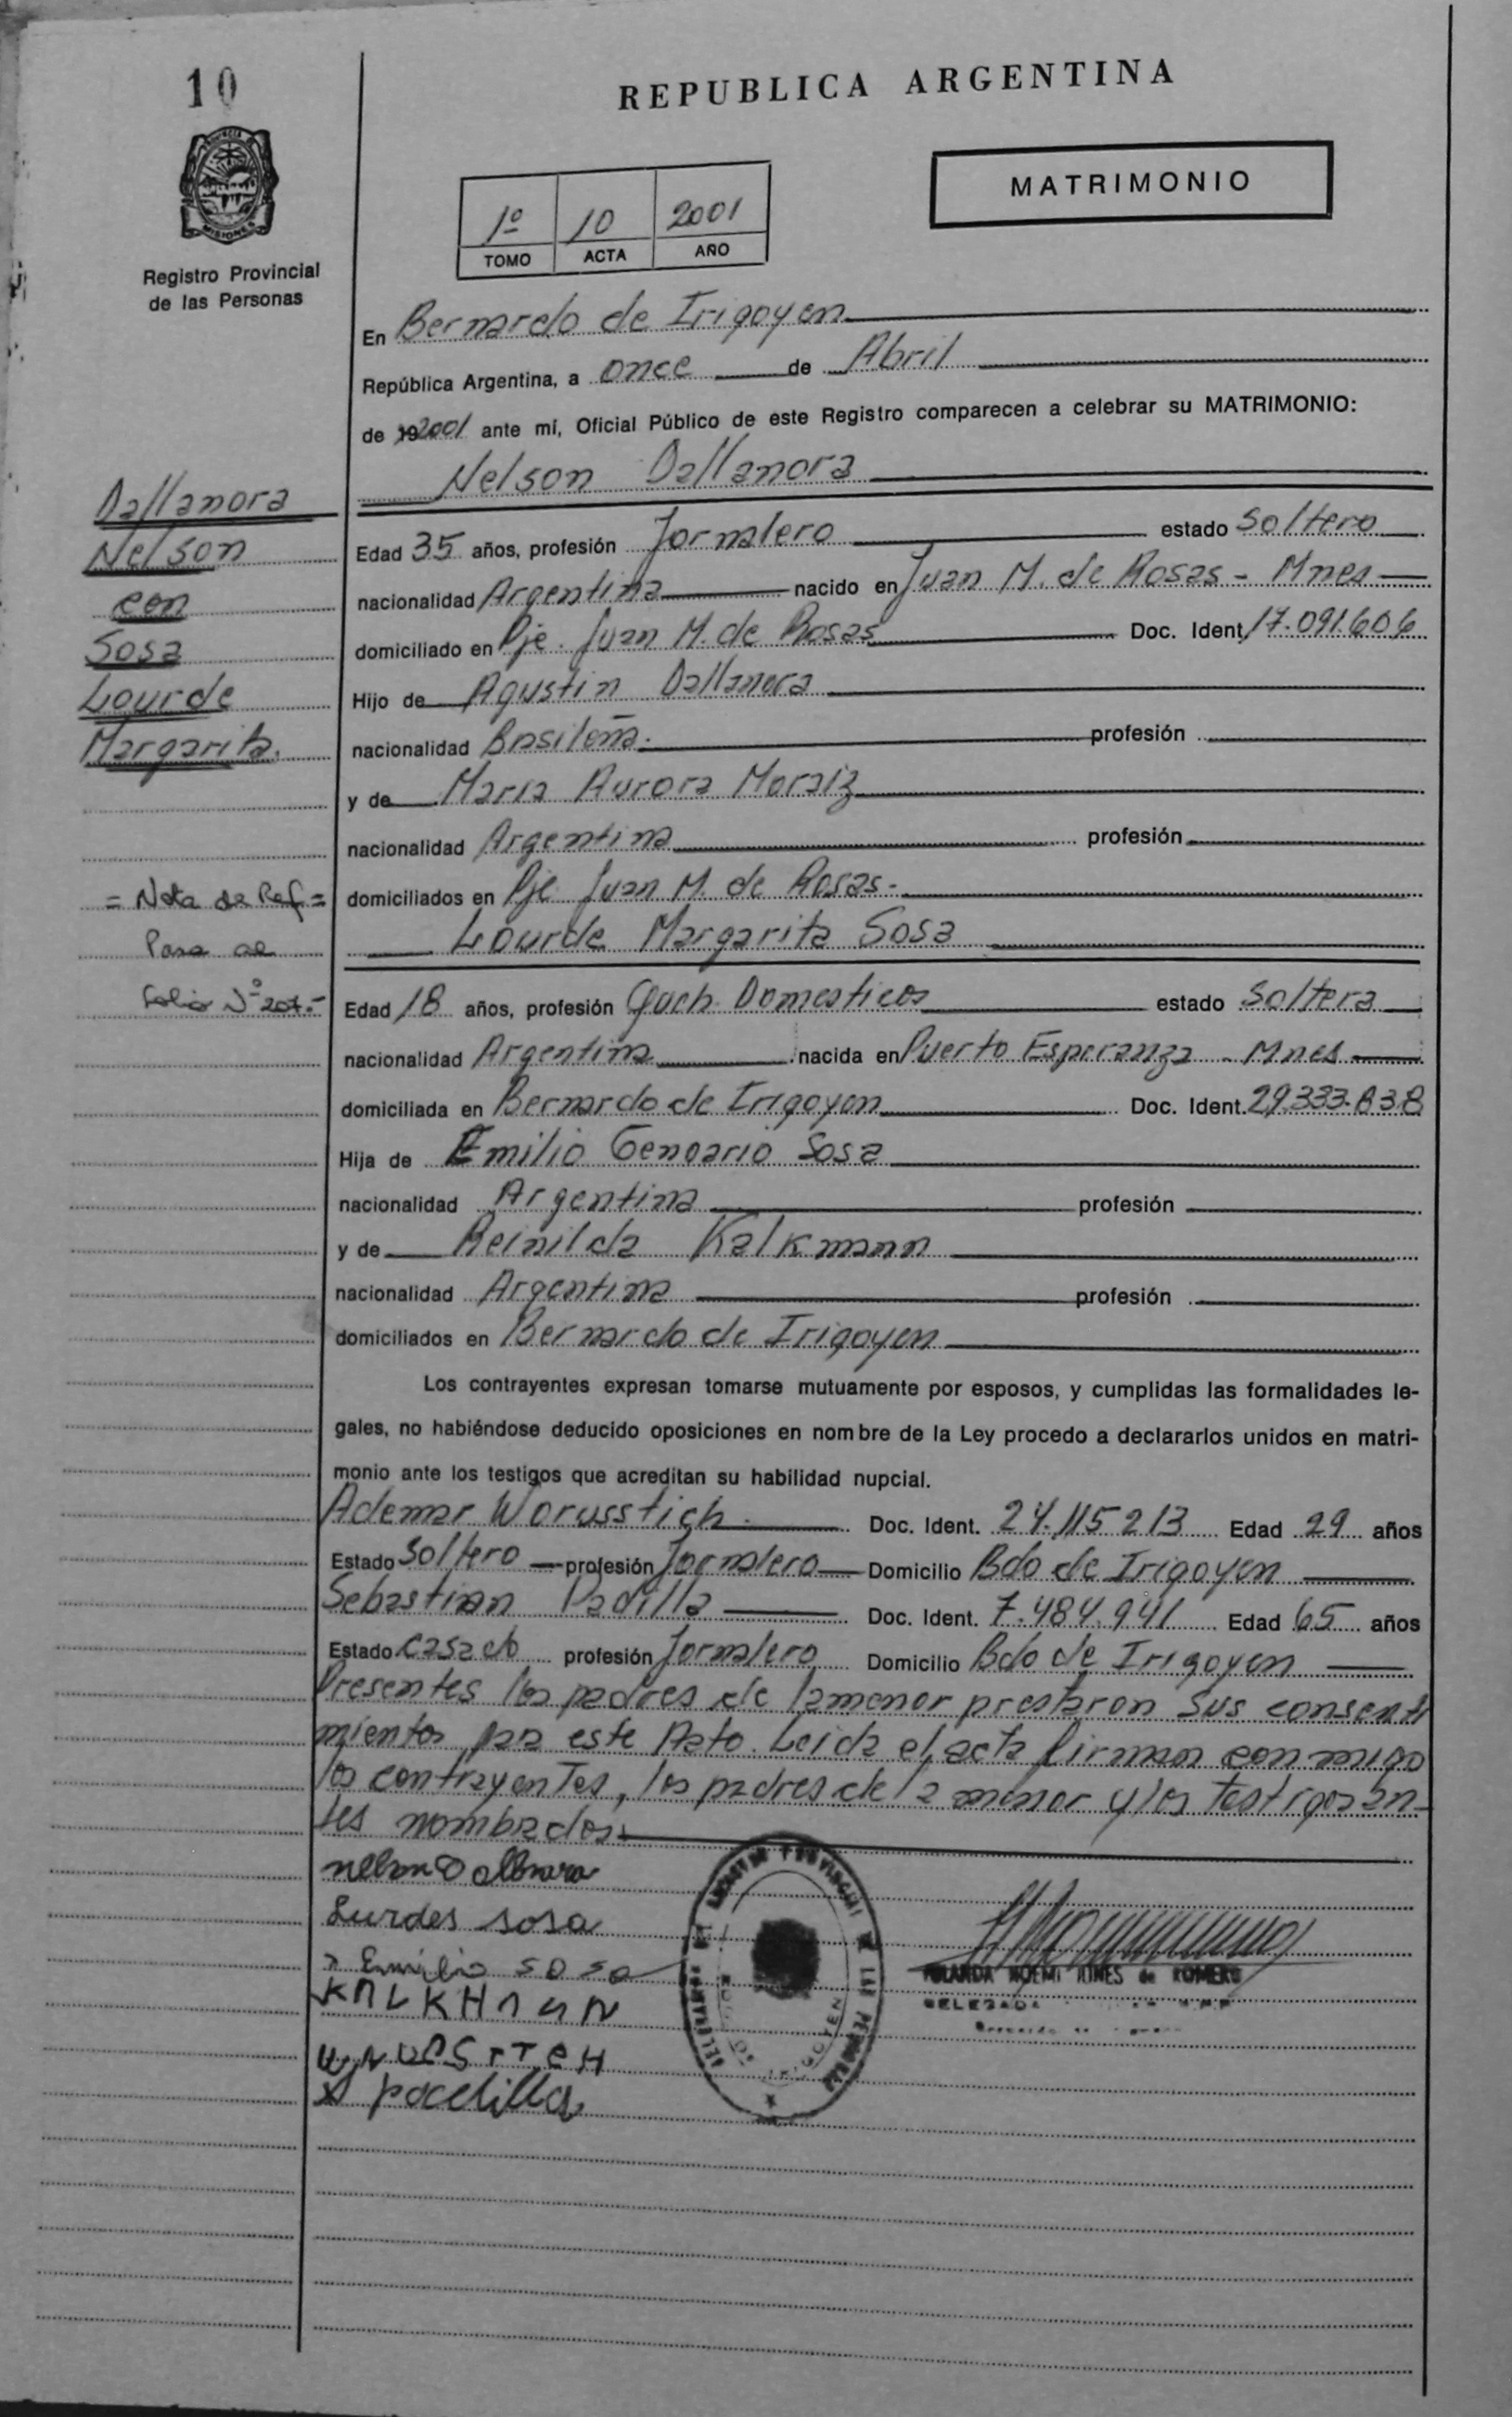 10
REPUBLICA ARGENTINA
MATRIMONIO
PROVINCIA DE
MISIONES
Registro Provincial
de las Personas
1º 10 2001
TOMO ACTA AÑO
En Bernardo de Irigoyen
República Argentina, a once de Abril
de 192001 ante mí, Oficial Público de este Registro comparecen a celebrar su MATRIMONIO:
Nelson Dallanora
Dallanora
Nelson
con
Sosa
Lourde
Margarita.
Edad 35 años, profesión Jornalero estado Soltero
nacionalidad Argentina nacido en Juan M. de Rosas - Mnes
domiciliado en Pje. Juan M. de Rosas Doc. Ident. 17.091.606
Hijo de Agustin Dallanora
nacionalidad Brasileña. profesión
y de Maria Aurora Moraiz
nacionalidad Argentina profesión
domiciliados en Pje Juan M. de Rosas-
Lourde Margarita Sosa
= Nota de Ref =
Pasa al
folio Nº 207.-
Edad 18 años, profesión Queh. Domesticos estado Soltera
nacionalidad Argentina nacida en Puerto Esperanza - Mnes
domiciliada en Bernardo de Irigoyen Doc. Ident. 29.333.838
Hija de Emilio Genoario Sosa
nacionalidad Argentina profesión
y de Reinilda Kalkmann
nacionalidad Argentina profesión
domiciliados en Bernardo de Irigoyen
Los contrayentes expresan tomarse mutuamente por esposos, y cumplidas las formalidades le-
gales, no habiéndose deducido oposiciones en nombre de la Ley procedo a declararlos unidos en matri-
monio ante los testigos que acreditan su habilidad nupcial.
Ademar Worusstich Doc. Ident. 24.115213 Edad 29 años
Estado Soltero profesión Jornalero Domicilio Bdo de Irigoyen
Sebastian Padilla Doc. Ident. 7.484.941 Edad 65 años
Estado casado profesión Jornalero Domicilio Bdo de Irigoyen
Presentes los padres de la menor prestaron sus consenti
mientos para este Acto. Leida el acta firman conmigo
los contrayentes, los padres de la menor y los testigos an-
tes nombrados
nelson Dallanora
Lurdes sosa
Emilio soso
KALKMANN
padilla
YOLANDA NOEMI de ROMERO
DELEGADA